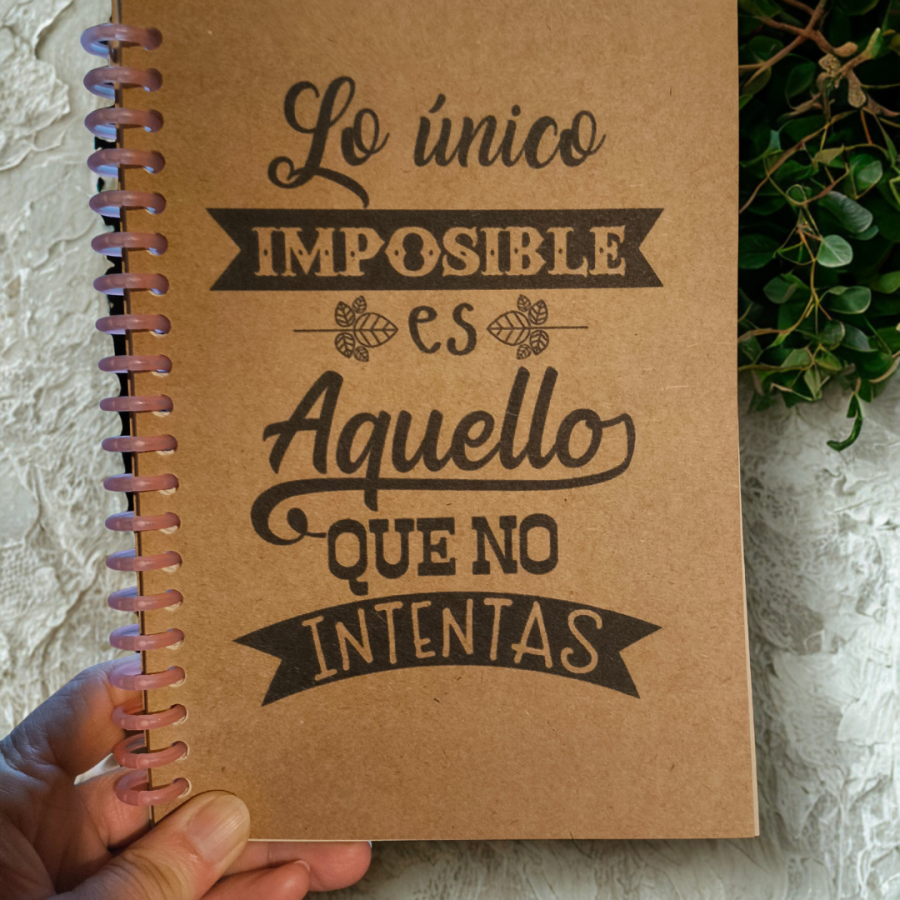 Lo único
IMPOSIBLE
es
Aquello
QUE NO
INTENTAS